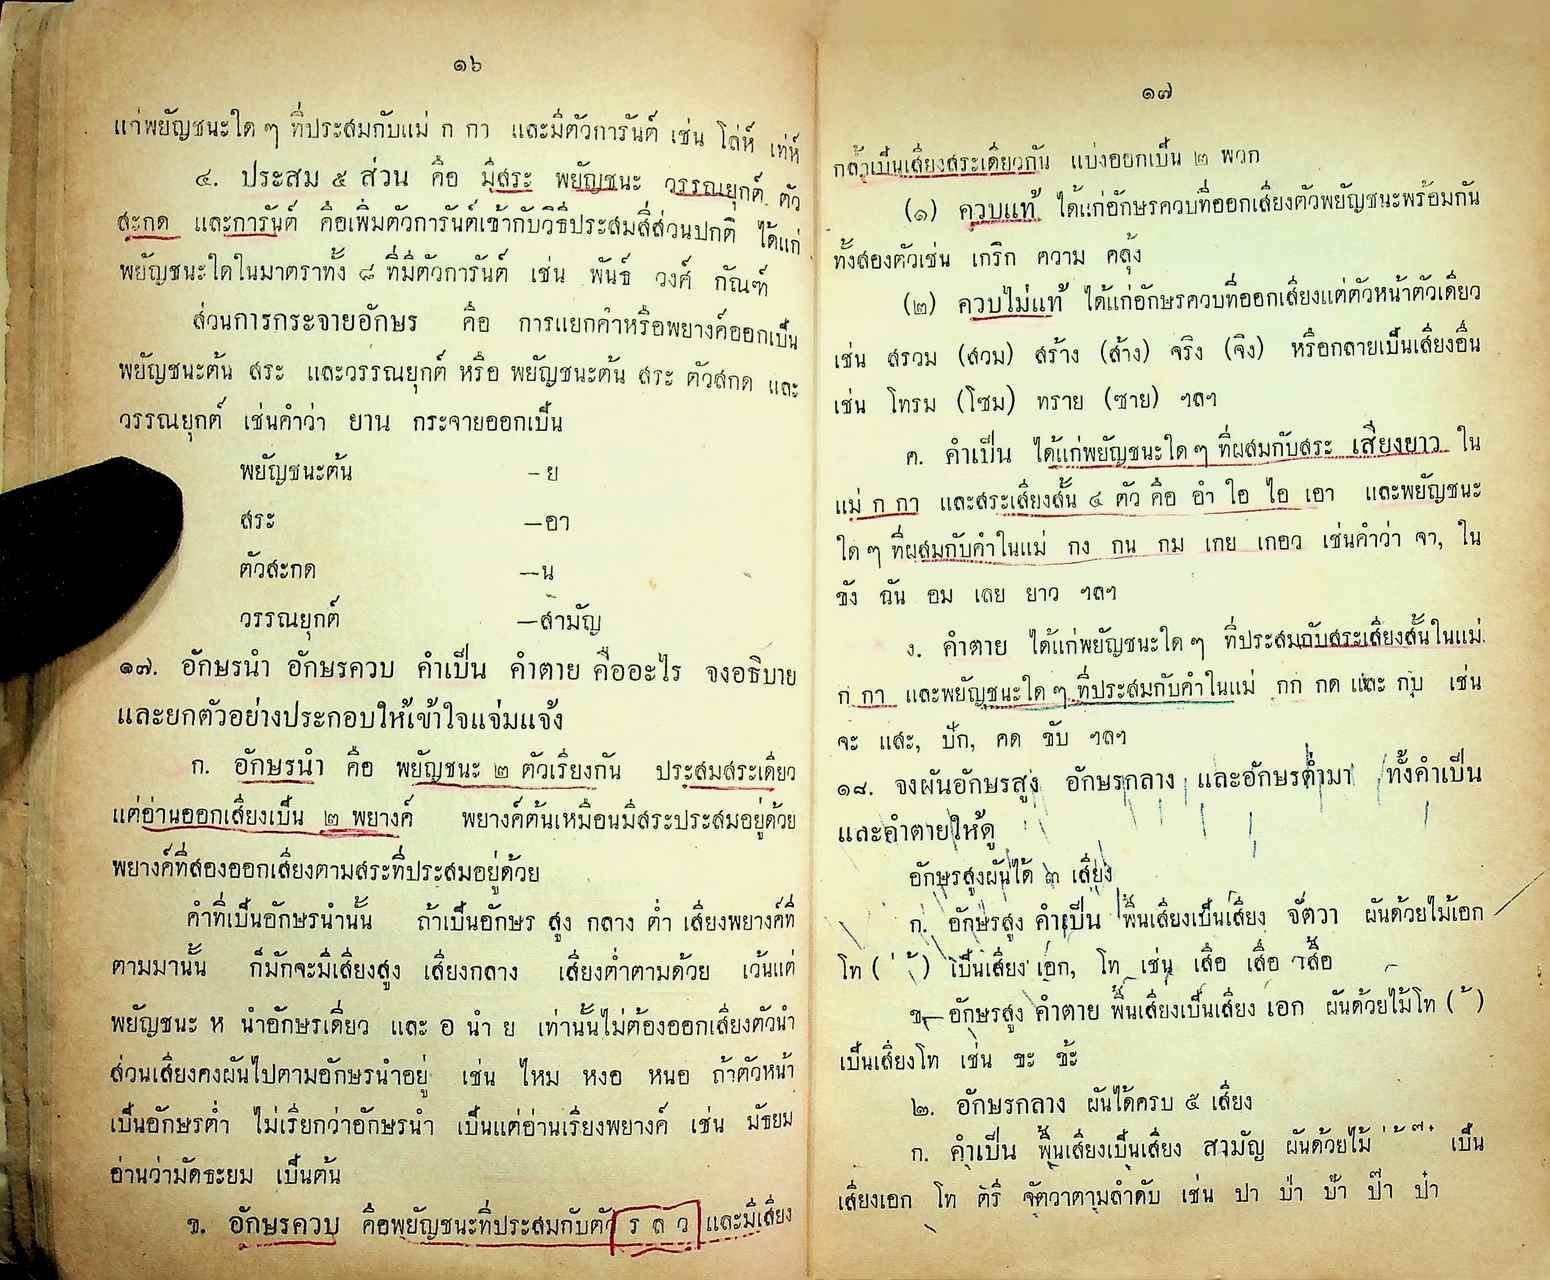 ๑๖
แก่พยัญชนะใด ๆ ที่ประสมกับแม่ ก กา และมีตัวการันต์ เช่น โล่ห์ เท่ห์
๔. ประสม ๕ ส่วน คือ มีสระ พยัญชนะ วรรณยุกต์ ตัว
สะกด และการันต์ คือเพิ่มตัวการันต์เข้ากับวิธีประสมสี่ส่วนปกติ ได้แก่
พยัญชนะใดในมาตราทั้ง ๘ ที่มีตัวการันต์ เช่น พันธ์ วงศ์ กัณฑ์
ส่วนการกระจายอักษร คือ การแยกคำหรือพยางค์ออกเป็น
พยัญชนะต้น สระ และวรรณยุกต์ หรือ พยัญชนะต้น สระ ตัวสกด และ
วรรณยุกต์ เช่นคำว่า ยาน กระจายออกเป็น
พยัญชนะต้น – ย
สระ —อา
ตัวสะกด —น
วรรณยุกต์ —สามัญ
๑๗. อักษรนำ อักษรควบ คำเป็น คำตาย คืออะไร จงอธิบาย
และยกตัวอย่างประกอบให้เข้าใจแจ่มแจ้ง
ก. อักษรนำ คือ พยัญชนะ ๒ ตัวเรียงกัน ประสมสระเดียว
แต่อ่านออกเสียงเป็น ๒ พยางค์ พยางค์ต้นเหมือนมีสระประสมอยู่ด้วย
พยางค์ที่สองออกเสียงตามสระที่ประสมอยู่ด้วย
คำที่เป็นอักษรนำนั้น ถ้าเป็นอักษร สูง กลาง ต่ำ เสียงพยางค์ที่
ตามมานั้น ก็มักจะมีเสียงสูง เสียงกลาง เสียงต่ำตามด้วย เว้นแต่
พยัญชนะ ห นำอักษรเดี่ยว และ อ นำ ย เท่านั้นไม่ต้องออกเสียงตัวนำ
ส่วนเสียงคงผันไปตามอักษรนำอยู่ เช่น ไหม หงอ หนอ ถ้าตัวหน้า
เป็นอักษรต่ำ ไม่เรียกว่าอักษรนำ เป็นแต่อ่านเรียงพยางค์ เช่น มัธยม
อ่านว่ามัดธะยม เป็นต้น
ข. อักษรควบ คือพยัญชนะที่ประสมกับตัว ร ล ว และมีเสียง
๑๗
กล้ำเป็นเสียงสระเดียวกัน แบ่งออกเป็น ๒ พวก
(๑) ควบแท้ ได้แก่อักษรควบที่ออกเสียงตัวพยัญชนะพร้อมกัน
ทั้งสองตัวเช่น เกริก ความ คลุ้ง
(๒) ควบไม่แท้ ได้แก่อักษรควบที่ออกเสียงแต่ตัวหน้าตัวเดียว
เช่น สรวม (สวม) สร้าง (ส้าง) จริง (จิง) หรือกลายเป็นเสียงอื่น
เช่น โทรม (โซม) ทราย (ซาย) ฯลฯ
ค. คำเป็น ได้แก่พยัญชนะใด ๆ ที่ผสมกับสระ เสียงยาว ใน
แม่ ก กา และสระเสียงสั้น ๔ ตัว คือ อำ ใอ ไอ เอา และพยัญชนะ
ใด ๆ ที่ผสมกับคำในแม่ กง กน กม เกย เกอว เช่นคำว่า จา, ใน
ขัง ฉัน อม เลย ยาว ฯลฯ
ง. คำตาย ได้แก่พยัญชนะใด ๆ ที่ประสมกับสระเสียงสั้นในแม่
ก กา และพยัญชนะใด ๆ ที่ประสมกับคำในแม่ กก กด และ กบ เช่น
จะ แสะ, ปัก, คด ขับ ฯลฯ
๑๘. จงผันอักษรสูง อักษรกลาง และอักษรต่ำมา ทั้งคำเป็น
และคำตายให้ดู
อักษรสูงผันได้ ๓ เสียง
ก. อักษรสูง คำเป็น พื้นเสียงเป็นเสียง จัตวา ผันด้วยไม้เอก
โท ( ่ ้ ) เป็นเสียง เอก, โท เช่น เสือ เสื่อ เสื้อ
ข. อักษรสูง คำตาย พื้นเสียงเป็นเสียง เอก ผันด้วยไม้โท ( ้ )
เป็นเสียงโท เช่น ขะ ข้ะ
๒. อักษรกลาง ผันได้ครบ ๕ เสียง
ก. คำเป็น พื้นเสียงเป็นเสียง สามัญ ผันด้วยไม้ ่ ้ ๊ ๋ เป็น
เสียงเอก โท ตรี จัตวาตามลำดับ เช่น ปา ป่า ป้า ป๊า ป๋า